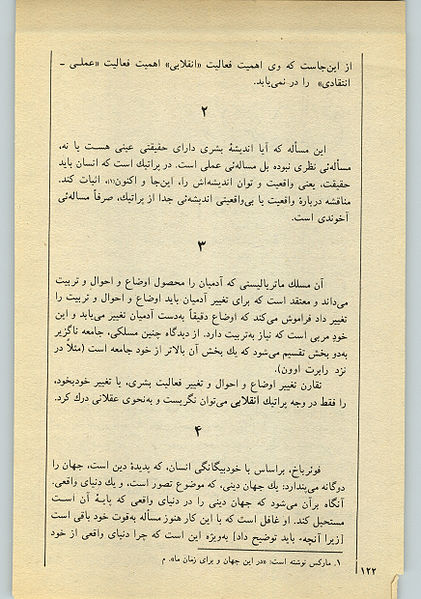 از این‌جاست که وی اهمیت فعالیت «انقلابی» اهمیت فعالیت «عملی ـ
انتقادی» را در نمی‌یابد.
۲
این مسأله که آیا اندیشهٔ بشری دارای حقیقتی عینی هست یا نه،
مسأله‌ئی نظری نبوده بل مسأله‌ئی عملی است. در پراتیك است که انسان باید
حقیقت، یعنی واقعیت و توان اندیشه‌اش را، این‌جا و اکنون(۱)، اثبات کند.
مناقشه دربارهٔ واقعیت یا بی‌واقعیتی اندیشه‌ئی جدا از پراتیك، صرفاً مسأله‌ئی
آخوندی است.
۳
آن مسلك ماتریالیستی که آدمیان را محصول اوضاع و احوال و تربیت
می‌داند و معتقد است که برای تغییر آدمیان باید اوضاع و احوال و تربیت را
تغییر داد فراموش می‌کند که اوضاع دقیقاً به‌دست آدمیان تغییر می‌یابد و این
خودِ مربی است که نیاز به‌تربیت دارد. از دیدگاه چنین مسلکی، جامعه ناگزیر
به‌دو بخش تقسیم می‌شود که یك بخش آن بالاتر از خود جامعه است (مثلاً در
نزد رابرت اوون).
تقارن تغییر اوضاع و احوال و تغییر فعالیت بشری، یا تغییر خودبخود،
را فقط در وجه پراتیك انقلابی می‌توان نگریست و به‌نحوی عقلانی درك کرد.
۴
فوئرباخ، براساس با خودبیگانگی انسان، که پدیدهٔ دین است، جهان را
دوگانه می‌پندارد: یك جهان دینی، که موضوع تصور است، و یك دنیای واقعی.
آنگاه برآن می‌شود که جهان دینی را در دنیای واقعی که پایهٔ آن است
مستحیل کند. او غافل است که با این کار هنوز مسأله به‌قوت خود باقی است
[زیرا آنچه باید توضیح داد] به‌ویژه این است که چرا دنیای واقعی از خود
۱. مارکس نوشته است: «در این جهان و برای زمان ما». م
۱۲۲